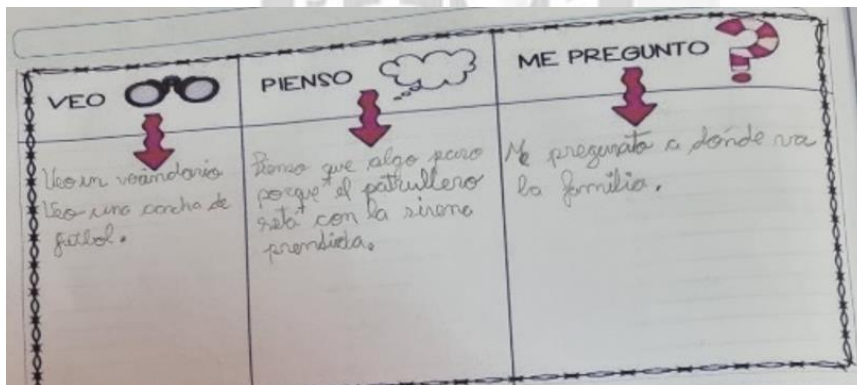 VEO
PIENSO
ME PREGUNTO
Veo un veindario
Veo una cancha de
futbol.
Pienso que algo paso
porque el patrullero
seta con la sirena
prendida.
Me pregunato a dónde va
la familia.